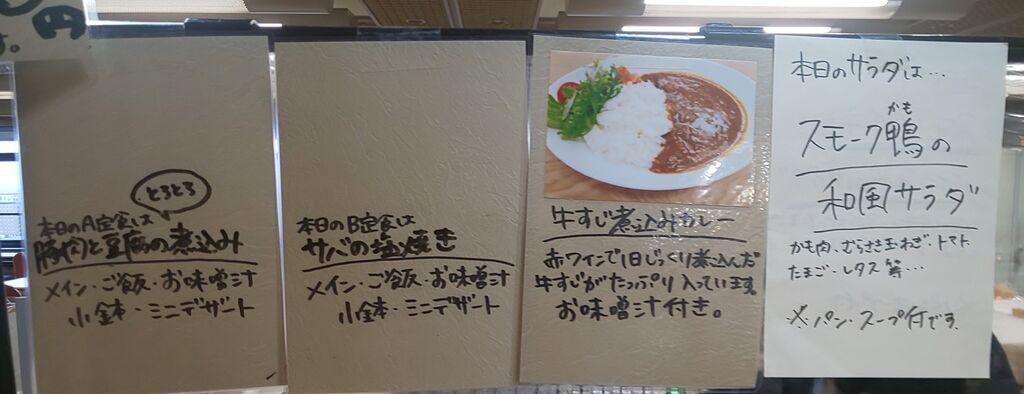 円
す。
とろとろ
本日のA定食は
豚肉と豆腐の煮込み
メイン・ご飯・お味噌汁
小鉢・ミニデザート
本日のB定食は
サバの塩焼き
メイン・ご飯・お味噌汁
小鉢・ミニデザート
牛すじ煮込みカレー
赤ワインで1日じっくり煮込んだ
牛すじがたっぷり入っています。
お味噌汁付き。
本日のサラダは…
かも
スモーク鴨の
和風サラダ
かも肉・むらさき玉ねぎ・トマト
たまご・レタス 等…
※パン・スープ付です。